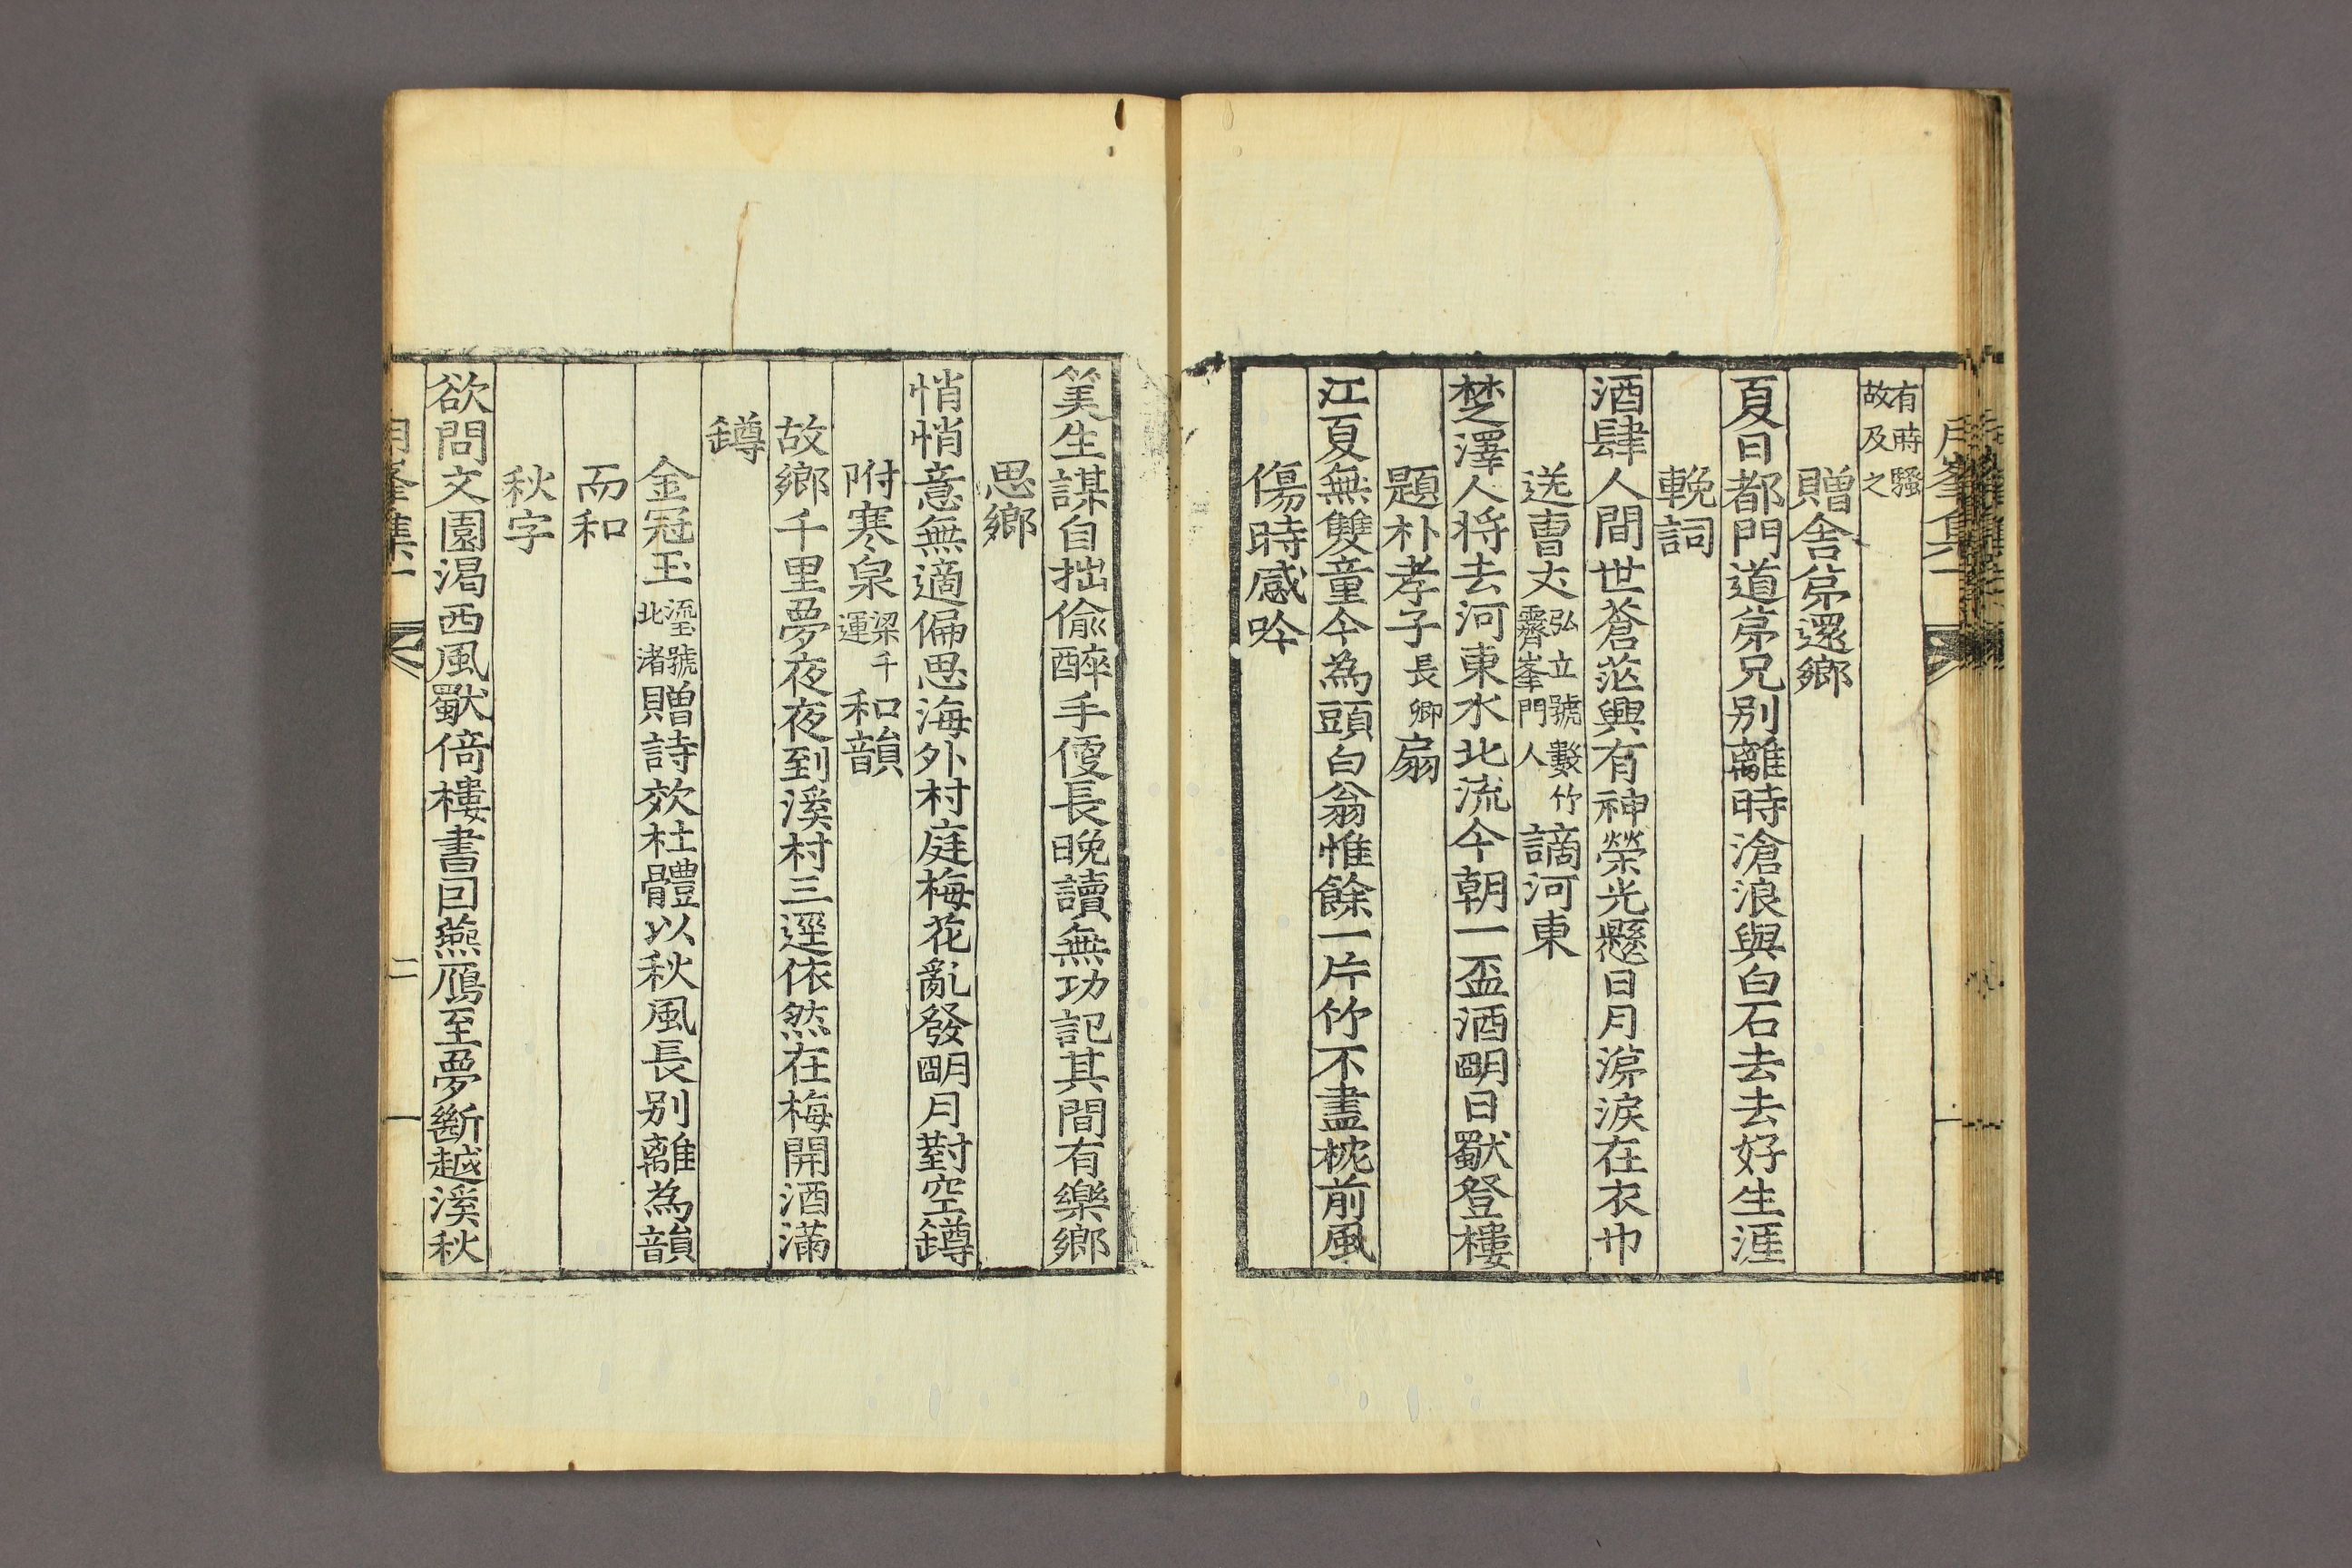 月峯集一
有時騷
故及之
贈舍弟還鄉
夏日都門道弟兄別離時滄浪與白石去去好生涯
輓詞
酒肆人間世蒼茫興有神榮光懸日月㳯淚在衣巾
送曺丈弘立號數竹霽峯門人謫河東
楚澤人將去河東水北流今朝一盃酒明日獨登樓
題朴孝子長卿扇
江夏無雙童今為頭白翁惟餘一片竹不盡枕前風
傷時感吟
笑生謀自拙偸醉手傻長晚讀無功記其間有樂鄉
思鄉
悄悄意無適偏思海外村庭梅花亂發明月對空罇
附寒泉梁千運和韻
故鄉千里夢夜夜到溪村三逕依然在梅開酒滿
罇
金冠玉瑬號北渚贈詩效杜體以秋風長別離為韻
而和
秋字
欲問文園渴西風獨倚樓書回燕鴈至夢斷越溪秋
月峯集一
二